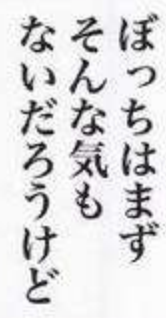 ぼっちはまず
そんな気も
ないだろうけど